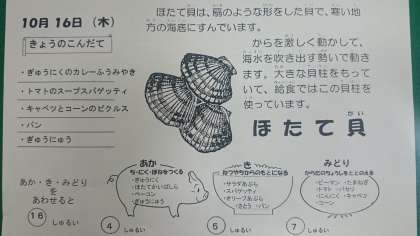 10月16日（木）
きょうのこんだて
・ぎゅうにくのカレーふうみやき
・トマトのスープスパゲッティ
・キャベツとコーンのピクルス
・パン
・ぎゅうにゅう
ほたて貝は、扇のような形をした貝で、寒い地
方の海底にすんでいます。
からを激しく動かして、
海水を吹き出す勢いで動き
ます。大きな貝柱をもって
いて、給食ではこの貝柱を
使っています。
ほたて貝
あか・き・みどり
を
あわせると
16 しゅるい
あか
ち・にく・ほねをつくる
・ぎゅうにく
・ほたてかいばしら
・ベーコン
・ぎゅうにゅう
4 しゅるい
き
ねつやちからのもとになる
・サラダあぶら
・スパゲッティ
・オリーブあぶら
・さとう ・パン
5 しゅるい
みどり
からだのちょうしをととのえる
・ピーマン ・たまねぎ
・トマト ・パセリ
・にんにく ・キャベツ
・コーン
7 しゅるい